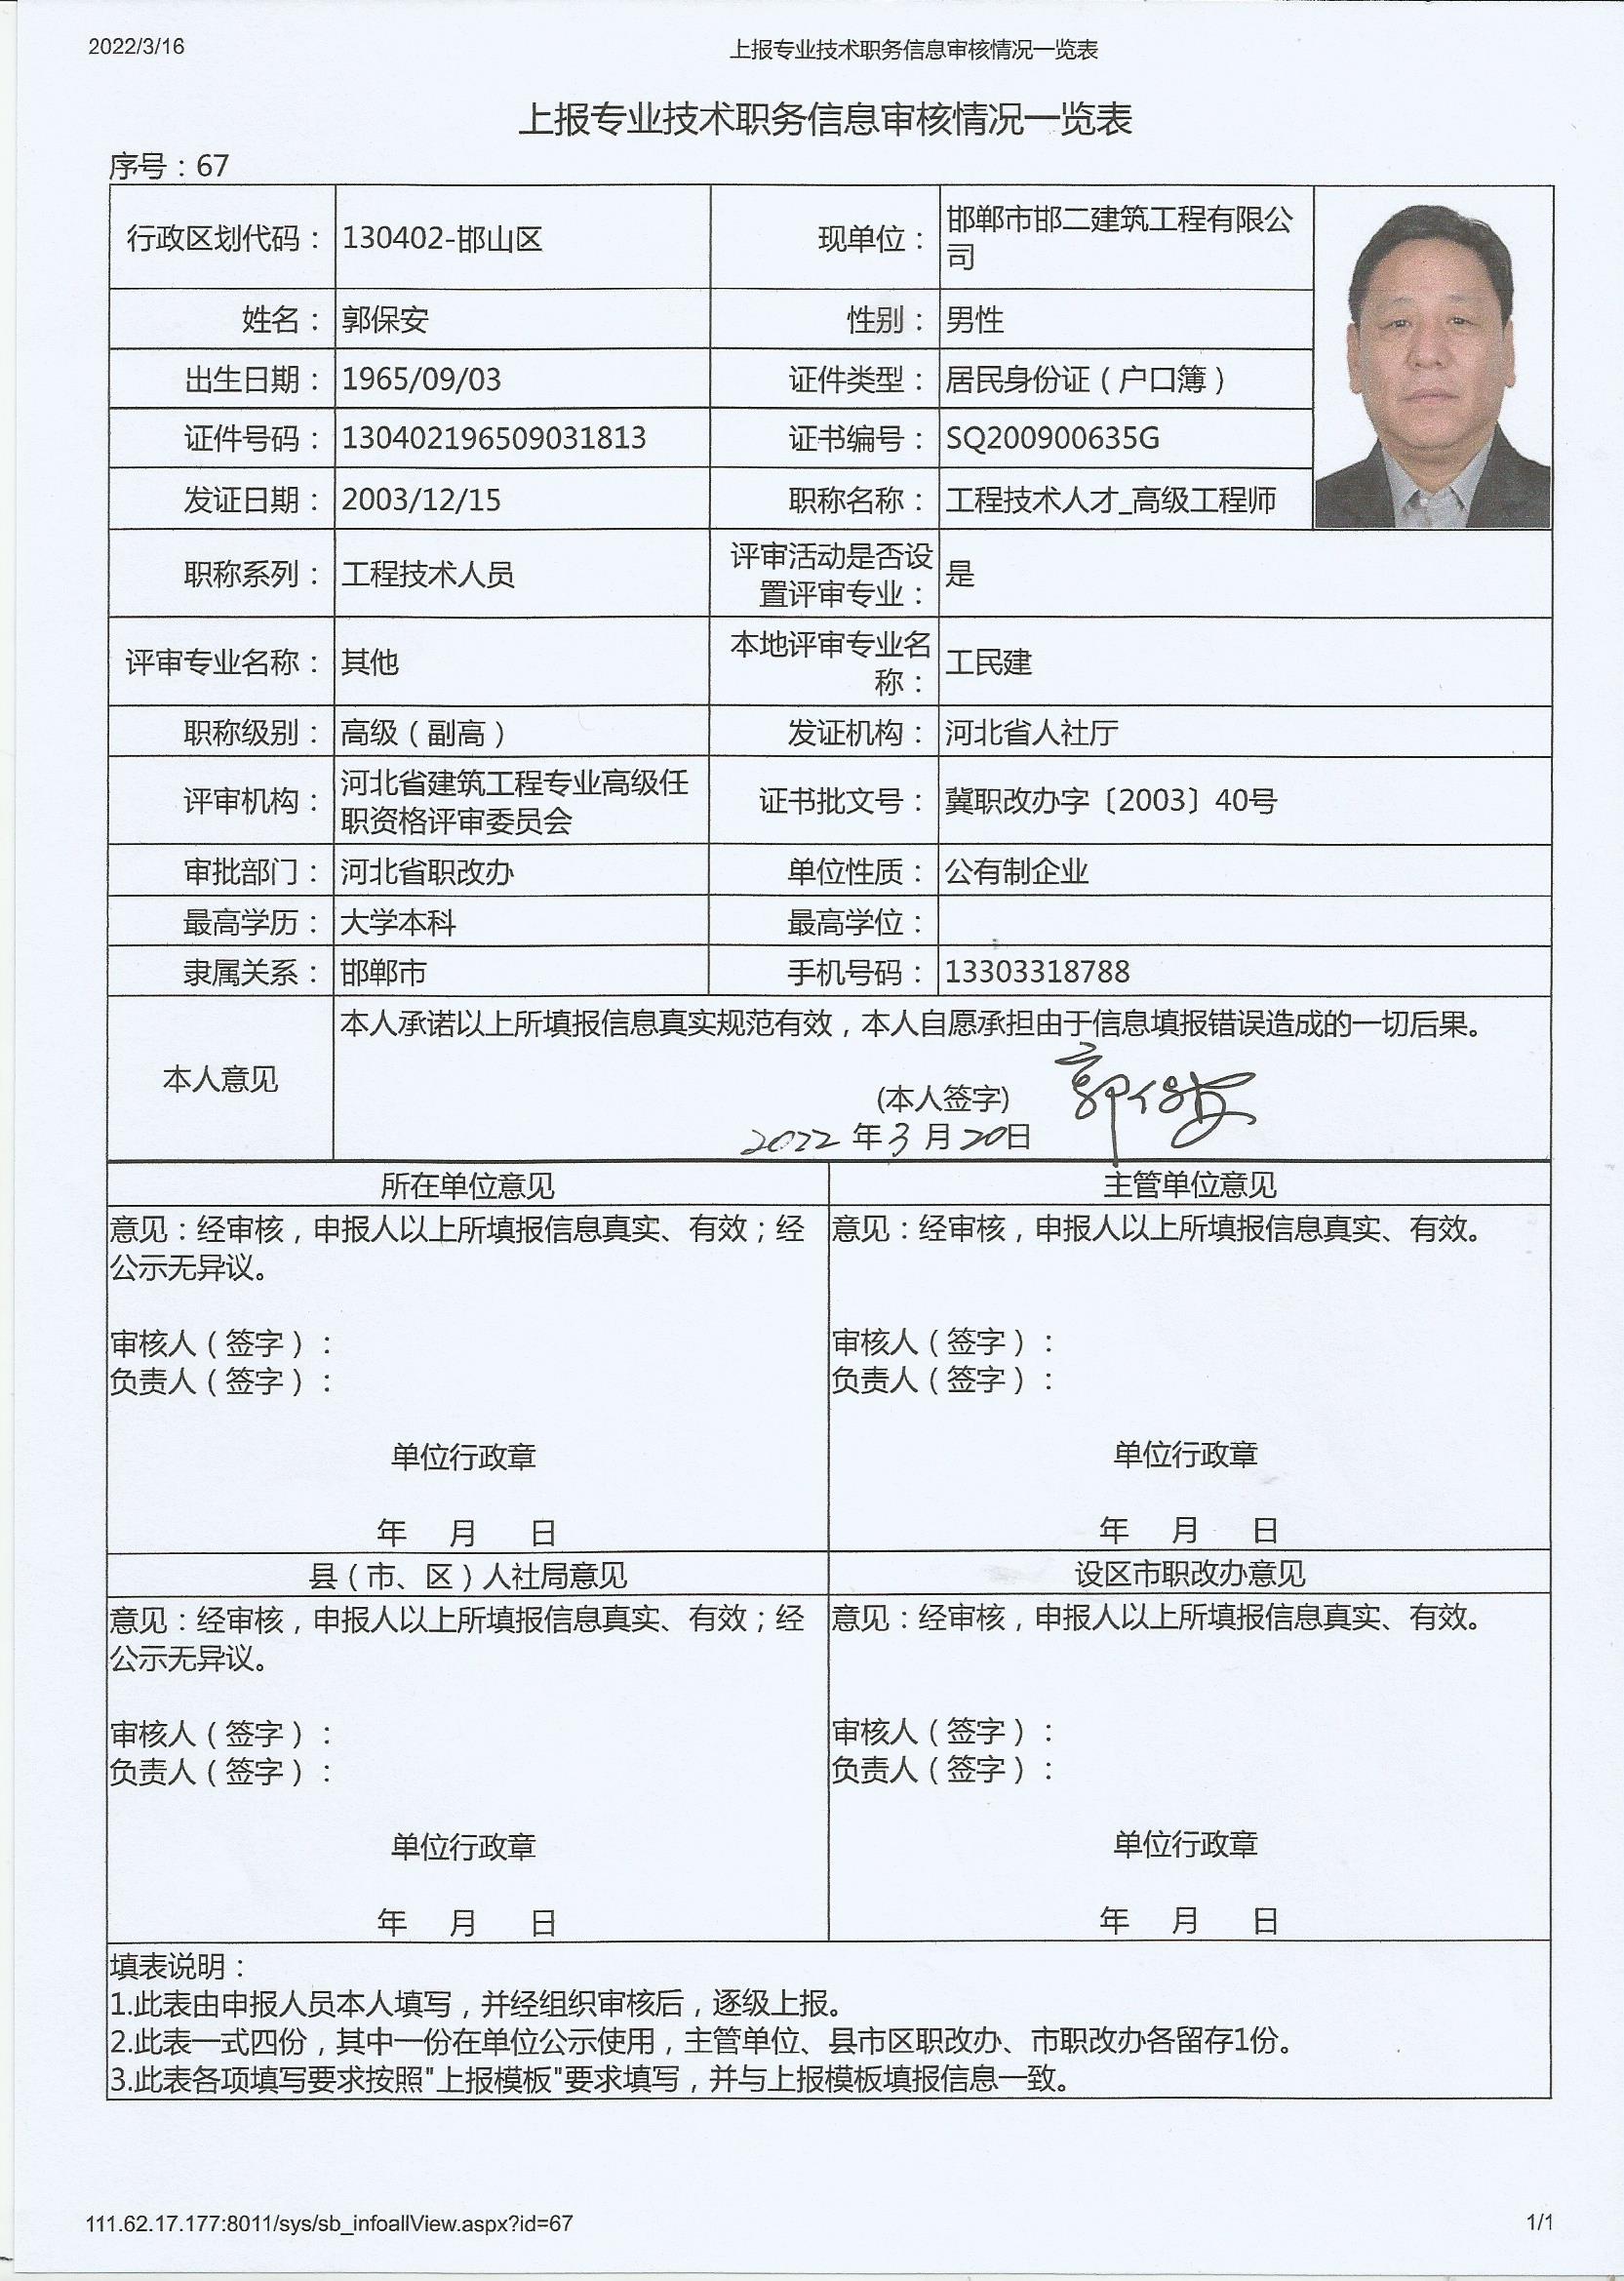 2022/3/16 上报专业技术职务信息审核情况一览表
上报专业技术职务信息审核情况一览表
序号：67
行政区划代码： 130402-邯山区 现单位： 邯郸市邯二建筑工程有限公
司
姓名： 郭保安 性别： 男性
出生日期： 1965/09/03 证件类型： 居民身份证（户口簿）
证件号码： 130402196509031813 证书编号： SQ200900635G
发证日期： 2003/12/15 职称名称： 工程技术人才_高级工程师
职称系列： 工程技术人员 评审活动是否设
置评审专业： 是
评审专业名称： 其他 本地评审专业名
称： 工民建
职称级别： 高级（副高） 发证机构： 河北省人社厅
评审机构： 河北省建筑工程专业高级任
职资格评审委员会 证书批文号： 冀职改办字〔2003〕40号
审批部门： 河北省职改办 单位性质： 公有制企业
最高学历： 大学本科 最高学位：
隶属关系： 邯郸市 手机号码： 13303318788
本人意见 本人承诺以上所填报信息真实规范有效，本人自愿承担由于信息填报错误造成的一切后果。
(本人签字) 郭保安
2022 年 3 月 20日
所在单位意见 主管单位意见
意见：经审核，申报人以上所填报信息真实、有效；经
公示无异议。
意见：经审核，申报人以上所填报信息真实、有效。
审核人（签字）： 审核人（签字）：
负责人（签字）： 负责人（签字）：
单位行政章 单位行政章
年 月 日 年 月 日
县（市、区）人社局意见 设区市职改办意见
意见：经审核，申报人以上所填报信息真实、有效；经
公示无异议。
意见：经审核，申报人以上所填报信息真实、有效。
审核人（签字）： 审核人（签字）：
负责人（签字）： 负责人（签字）：
单位行政章 单位行政章
年 月 日 年 月 日
填表说明：
1.此表由申报人员本人填写，并经组织审核后，逐级上报。
2.此表一式四份，其中一份在单位公示使用，主管单位、县市区职改办、市职改办各留存1份。
3.此表各项填写要求按照"上报模板"要求填写，并与上报模板填报信息一致。
111.62.17.177:8011/sys/sb_infoallView.aspx?id=67 1/1